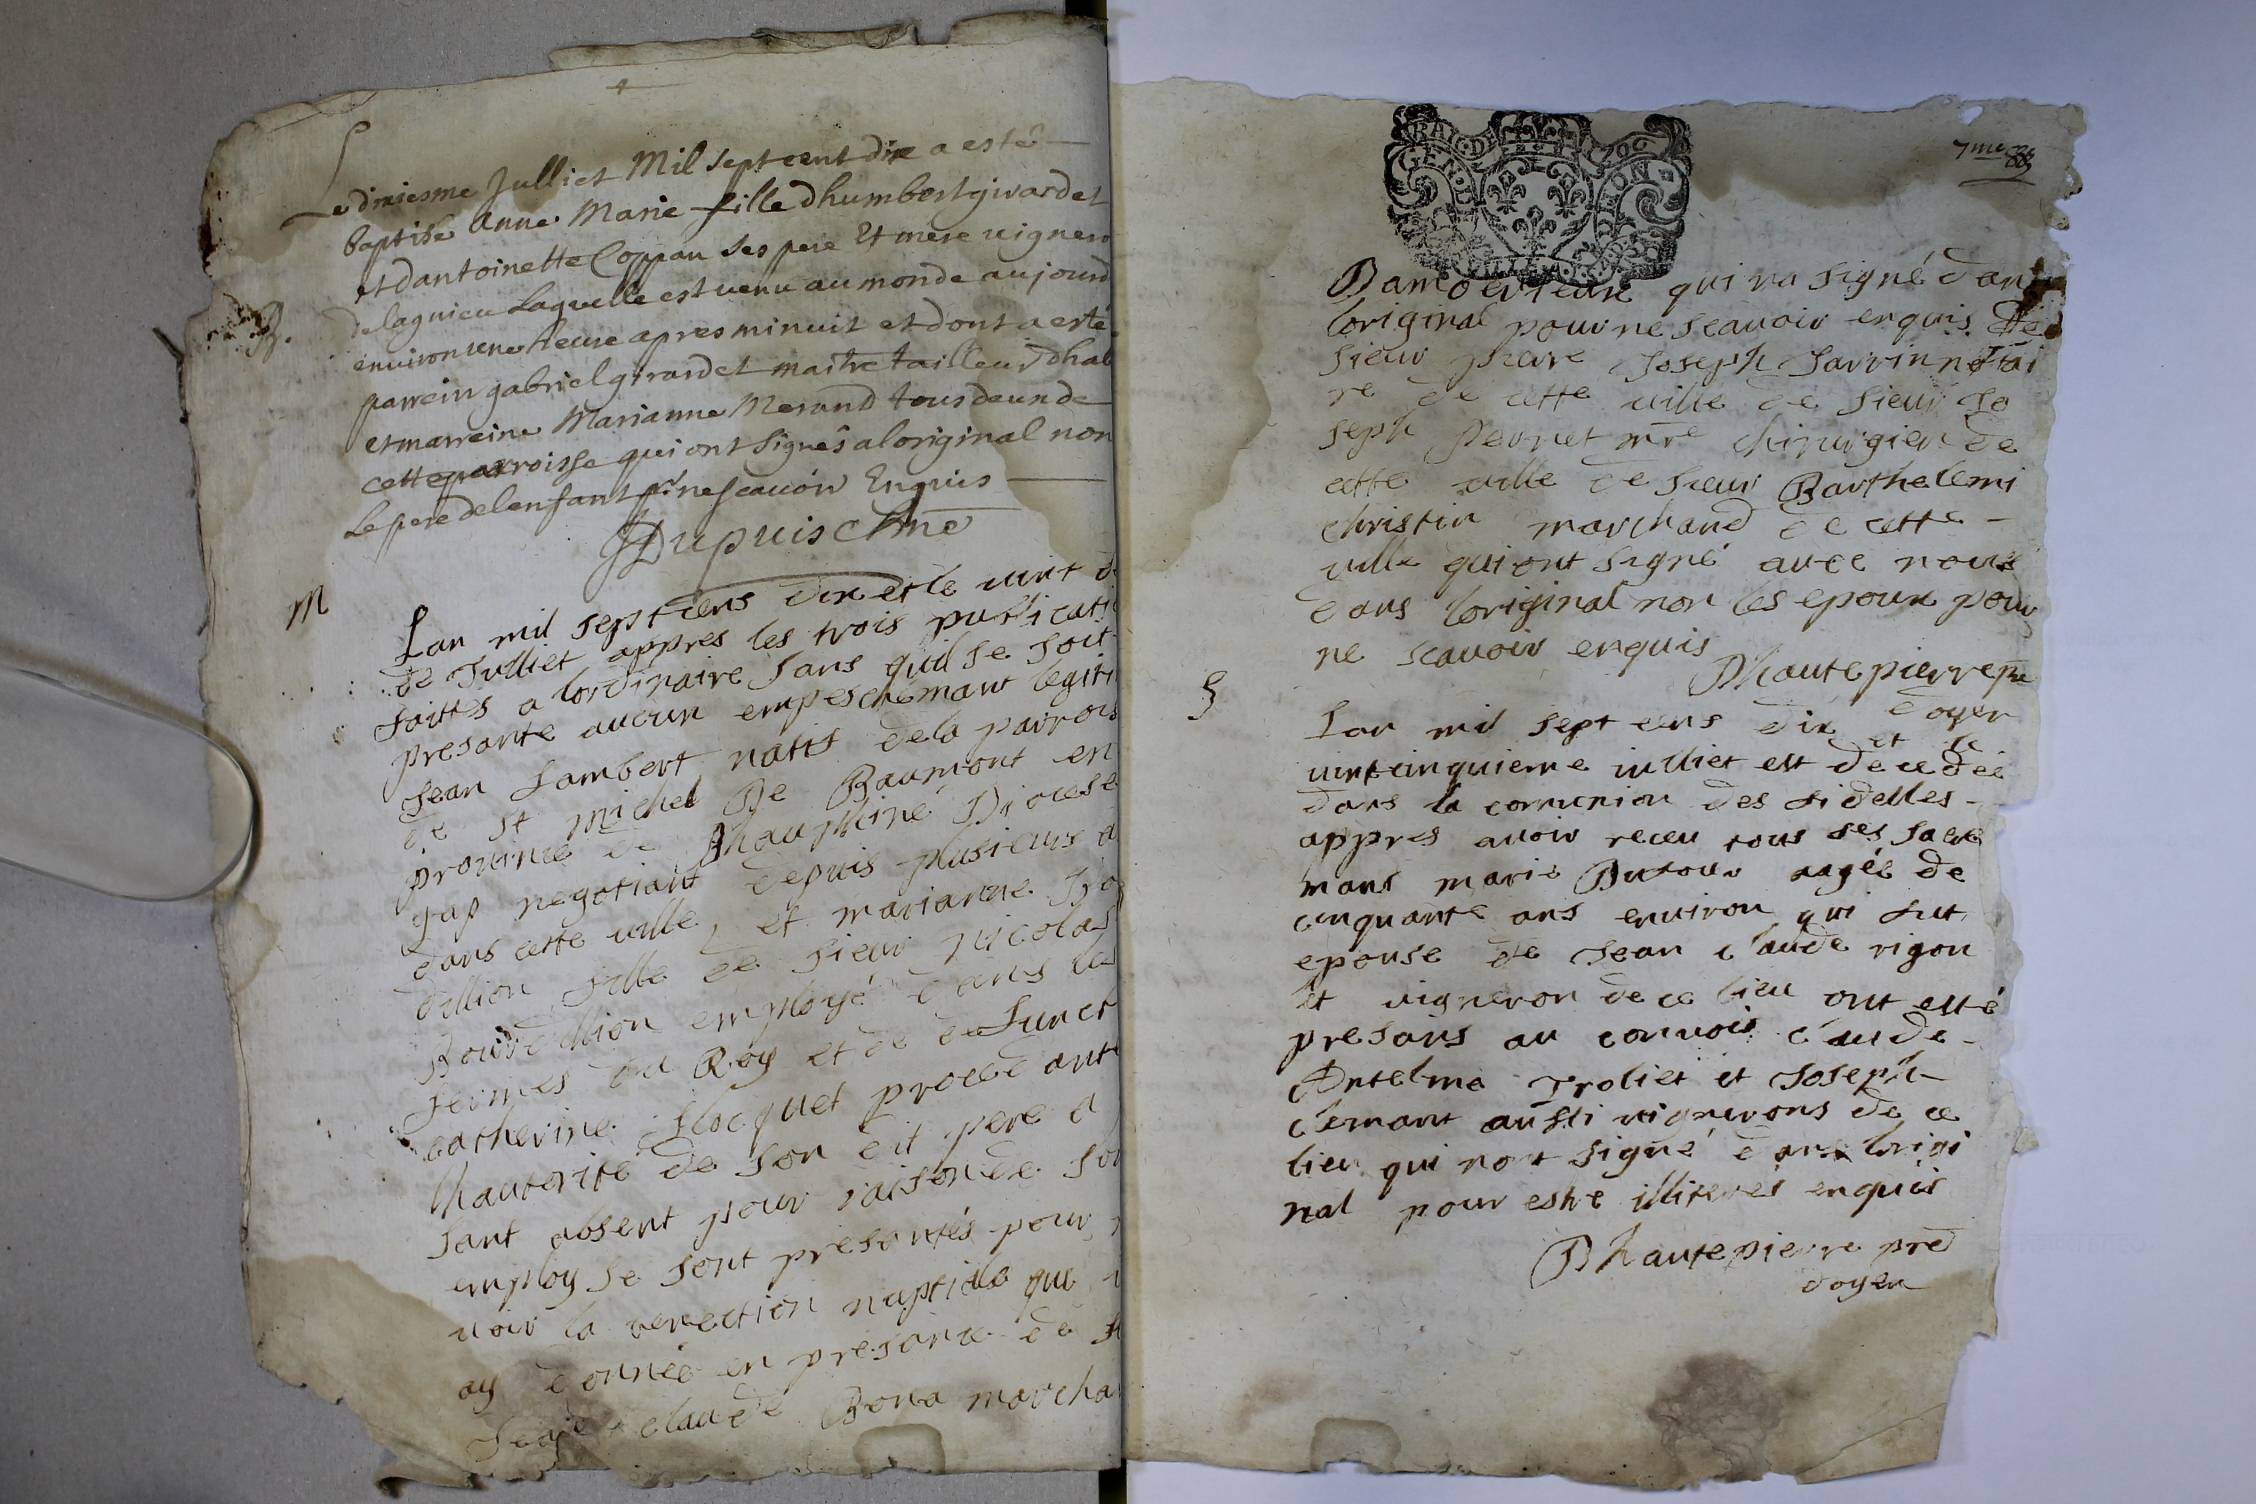 Le dixiesme Julliet Mil sept cent dix a esté
baptisée Anne Marie fille dhumbert girardet
et dantoinette Coppau ses pere Et mere vignero
de lagnieu Laquelle est venu au monde aujourd
environ une heure apres minuit et dont a esté
parrein gabriel girardet maitre tailleur dhab
et marreine Marianne Merand tous deux de
cette parroisse qui ont signés a loriginal non
Le pere de lenfant pr ne scavoir Enquis
Dupuis chne
B.
M
Lan mil sept cens dix et le vint d
de Julliet appres les trois publicati
faittes a lordinaire sans quil se soit
presanté aucun empeschemant legiti
Jean Lambert natif de la parrois
de st michel De Baumont en
province de Dhauphiné Diocese
gap negotiant depuis plusieurs a
dans cette ville, et marianne Bo
dillion fille de sieur Nicolas
Bourdillion employé dans les
fermes du Roy et de defunct
catherine flocquet procedante
lhautorité de son dit pere a
sant absent pour raison de son
employ se sont presantés pour
voir la benediction nuptiale que
ay donnée en presance de
claude Bona marchan
7me
GEN
1706
Dam qui na signé dans
loriginal pour ne scavoir enquis De
sieur pierre Joseph Sarrin notai
re de cette ville de sieur Jo
seph pernet mre chirurgien de
cette ville de sieur Barthelemi
christin marchand de cette
ville qui ont signé avec nous
dans loriginal non les epoux pour
ne scavoir enquis
Dhautepierre pre
doyen
S
Lan mil sept cens dix et le
vintcinquieme iulliet est decedée
dans la communion des fidelles
appres avoir receu tous ses sacre
mans marie Dufour aagée de
cinquante ans environ qui fut
epouse de Jean claude rigon
et vigneron de ce lieu ont esté
presans au convois claude
Antelme Troliet et Joseph
clemant aussi vignerons de ce
lieu qui nont signé dans lorigi
nal pour estre illiterés enquis
Dhautepierre pre
doyen